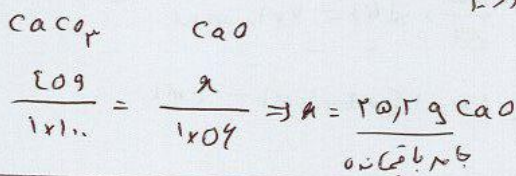 CaCO۳ CaO
٤٥g / ۱×۱۰۰ = x / ۱×۵۶ ⇒ x = ۲۵٫۲ g CaO
جامد باقیمانده